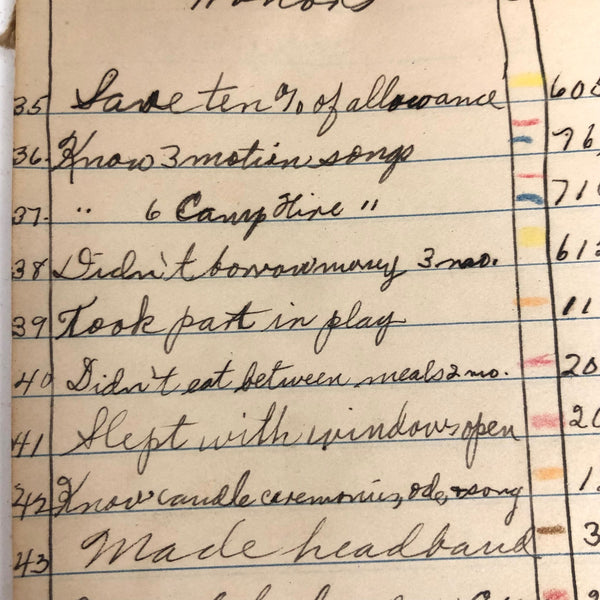 Honors
35 Save ten % of allowance 605
36. Know 3 motion songs 76
37. " 6 Camp Fire " 71
38 Didn't borrow money 3 mo. 612
39 Took part in play 11
40 Didn't eat between meals 2 mo. 20
41 Slept with windows open 20
42 Know candle ceremonies, ode, & song 1
43 Made headband 3